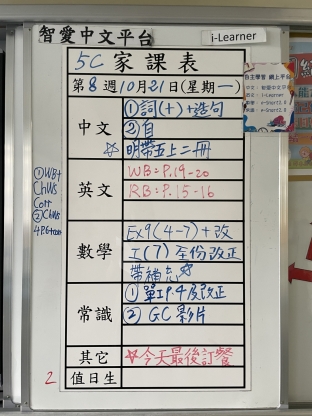 智愛中文平台
i-Learner
5C 家課表
第8週10月21日(星期一)
中文
①詞(十)+造句
②自
☆明帶五上二冊
英文
WB=P.19-20
RB=P.15-16
①WB+
ChWs
Corr
②ChWs
數學
Ex9(4-7)+改
工(7)至份改正
帶補志☆
常識
①單1P.4及改正
②GC影片
其它
☆今天最後訂餐
2
值日生
自主學習 網上平台